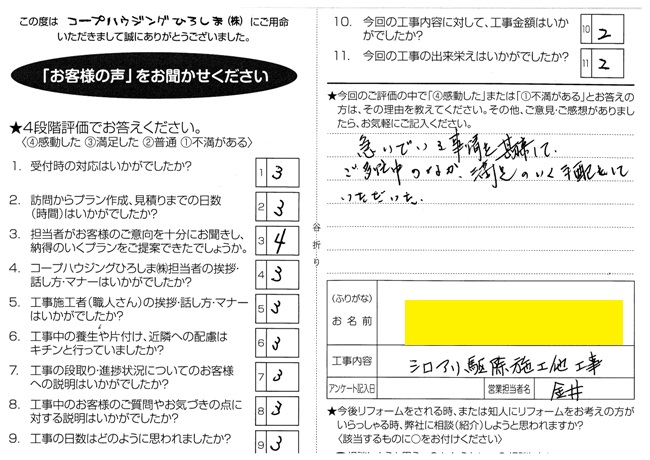 この度は コープハウジングひろしま(株) にご用命
いただきまして誠にありがとうございました。
「お客様の声」をお聞かせください
★4段階評価でお答えください。
〈④感動した ③満足した ②普通 ①不満がある〉
1. 受付時の対応はいかがでしたか? 1 3
2. 訪問からプラン作成、見積りまでの日数
(時間)はいかがでしたか? 2 3
3. 担当者がお客様のご意向を十分にお聞きし、
納得のいくプランをご提案できたでしょうか。 3 4
4. コープハウジングひろしま㈱担当者の挨拶・
話し方・マナーはいかがでしたか? 4 3
5. 工事施工者(職人さん)の挨拶・話し方・マナー
はいかがでしたか? 5 3
6. 工事中の養生や片付け、近隣への配慮は
キチンと行っていましたか? 6 3
7. 工事の段取り・進捗状況についてのお客様
への説明はいかがでしたか? 7 3
8. 工事中のお客様のご質問やお気づきの点に
対する説明はいかがでしたか? 8 3
9. 工事の日数はどのように思われましたか? 9 3
谷折り
10. 今回の工事内容に対して、工事金額はいか
がでしたか? 10 2
11. 今回の工事の出来栄えはいかがでしたか? 11 2
★今回のご評価の中で「④感動した」または「①不満がある」とお答えの
方は、その理由を教えてください。その他、ご意見・ご感想がありまし
たら、お気軽にご記入ください。
急いでいる事情を
ご多忙中のなか、満足のいく手配をして
いただいた。
(ふりがな)
お名前
工事内容 シロアリ駆除施工他工事
アンケート記入日 営業担当者名 金井
★今後リフォームをされる時、または知人にリフォームをお考えの方が
いらっしゃる時、弊社に相談(紹介)しようと思われますか?
〈該当するものに○をお付けください〉